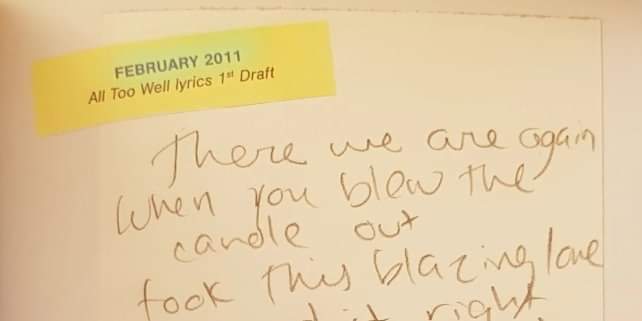 FEBRUARY 2011
All Too Well lyrics 1st Draft
There we are again
When you blew the
candle out
took this blazing love
it right